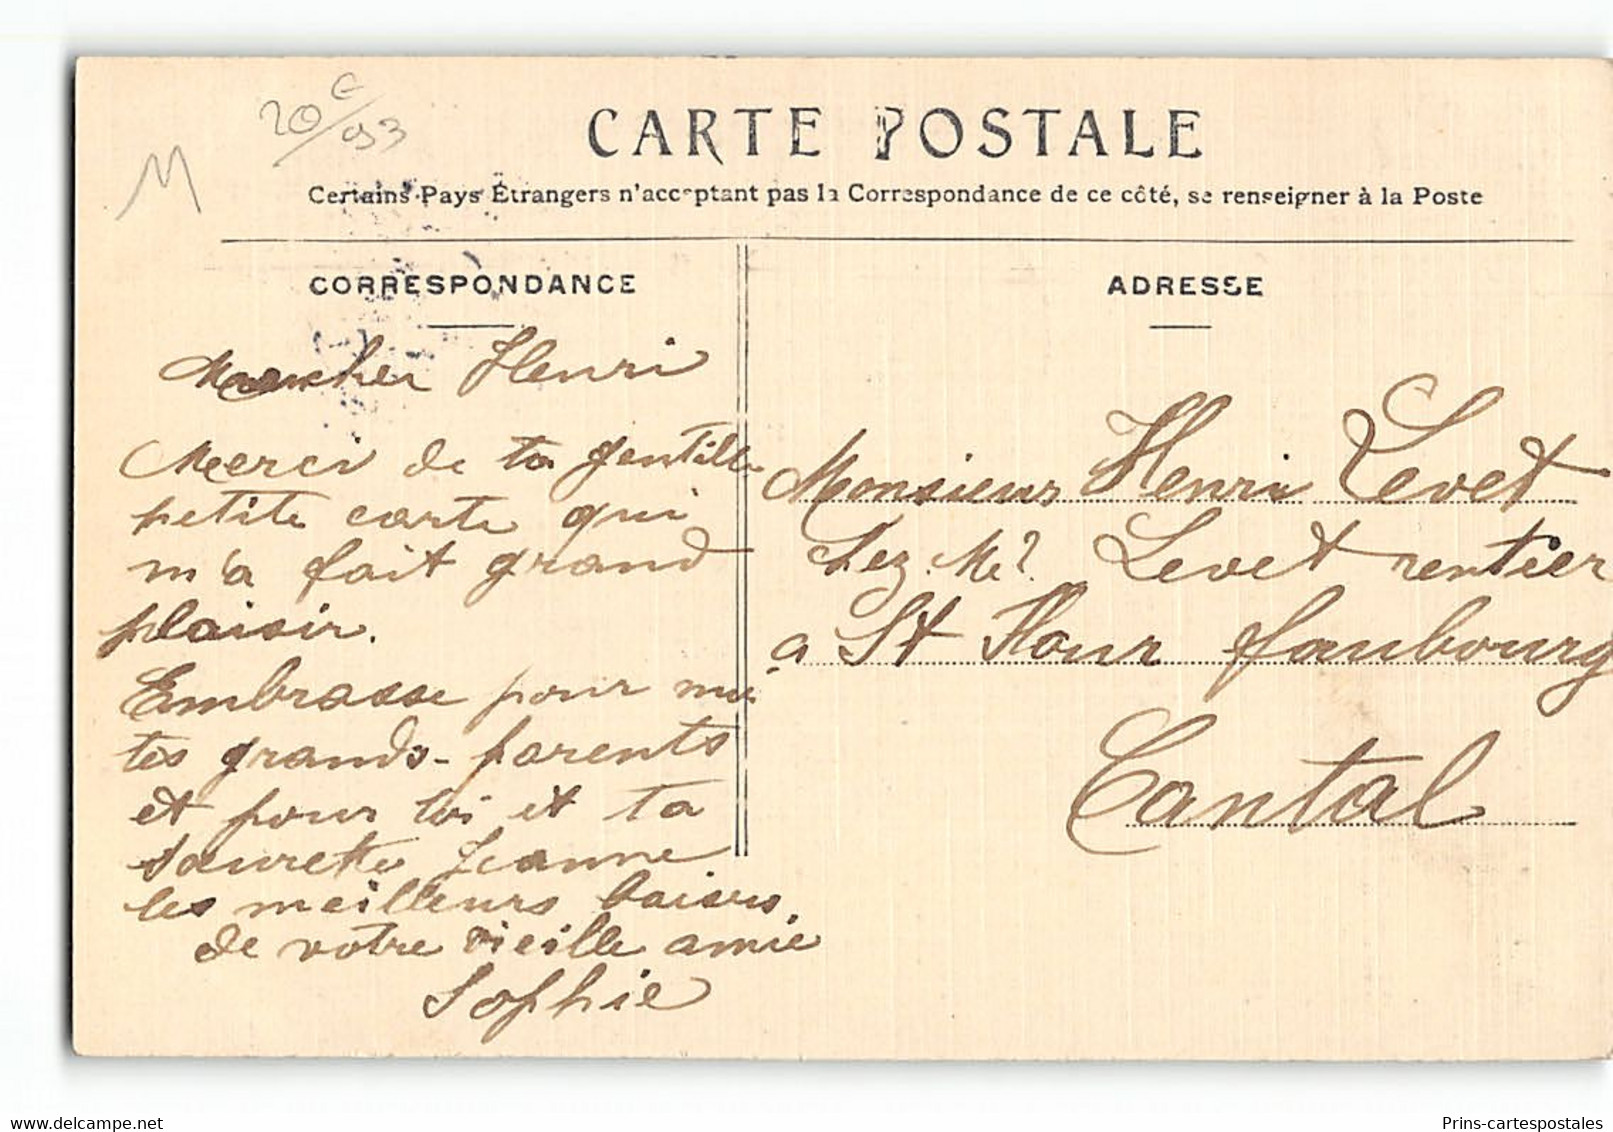 20€/093
M
CARTE POSTALE
Certains Pays Étrangers n'acceptant pas la Correspondance de ce côté, se renseigner à la Poste
CORRESPONDANCE
Mon cher Henri
Merci de ta gentille
petite carte qui
m'a fait grand
plaisir.
Embrasse pour moi
tes grands-parents
et pour toi et ta
sœurette Jeanne
les meilleurs baisers
de votre vieille amie
Sophie
ADRESSE
Monsieur Henri Levet
chez Mr Levet rentier
a St Flour faubourg
Cantal
delcampe.net
Prins-cartespostales